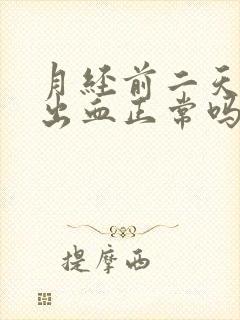 月经前二天
出血正常吗
提摩西